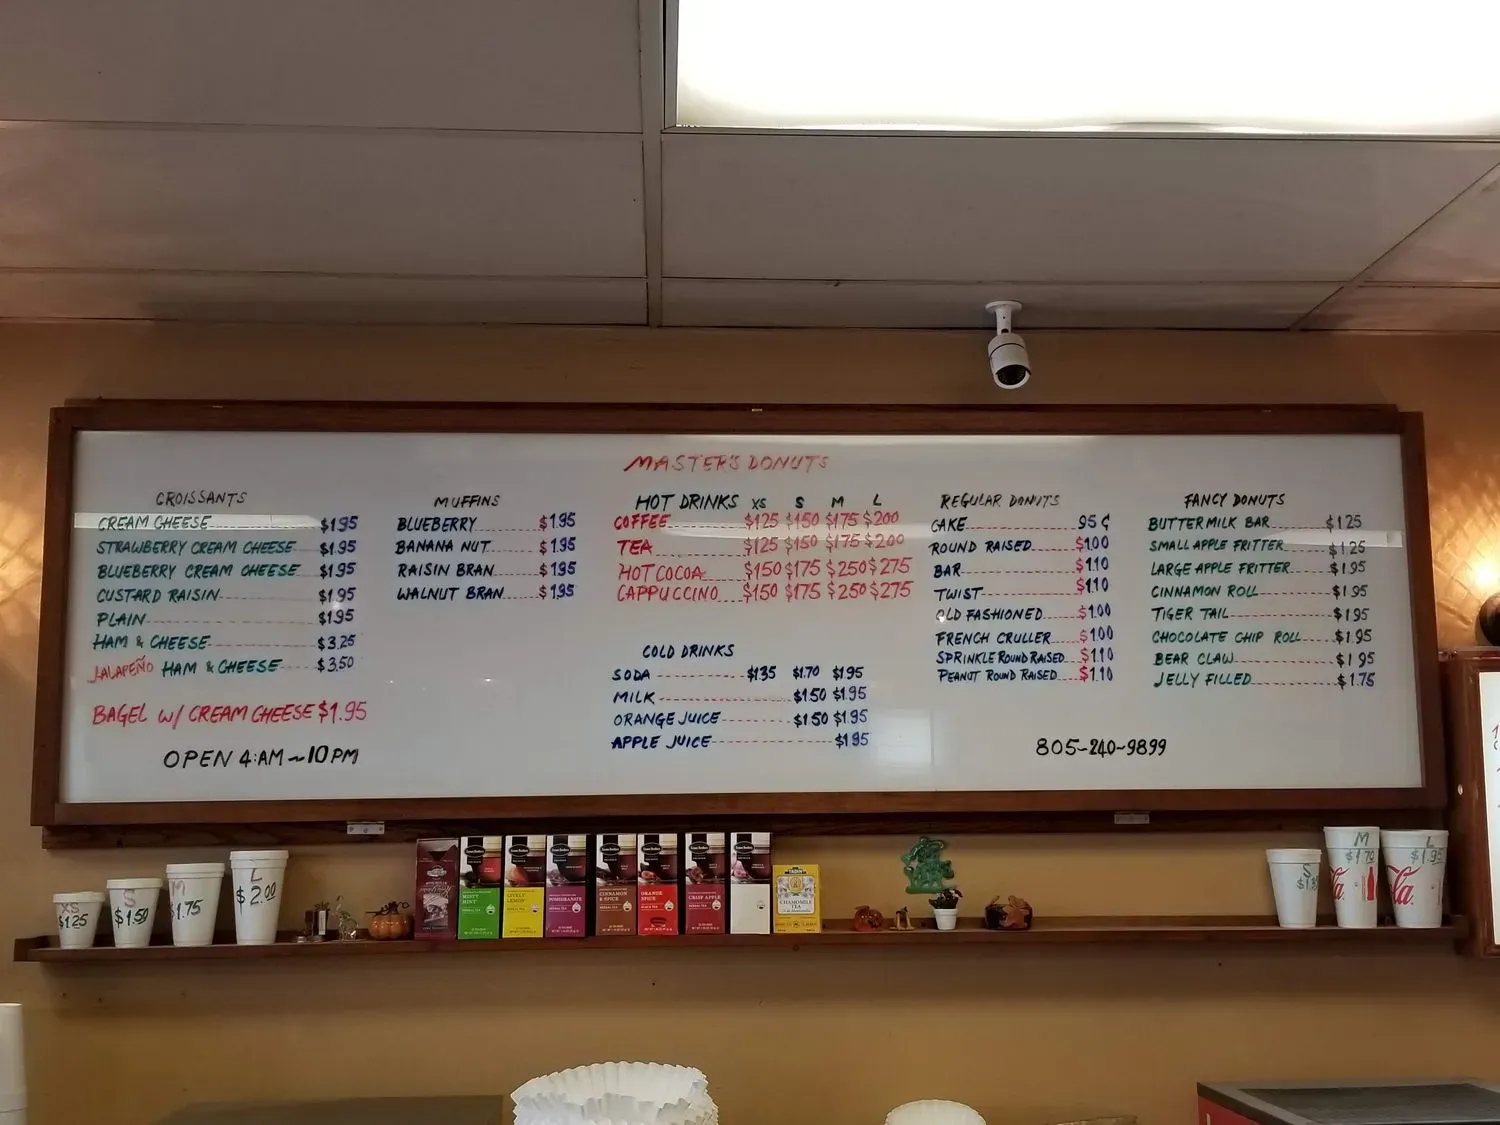 MASTER'S DONUTS
CROISSANTS
CREAM CHEESE $1.95
STRAWBERRY CREAM CHEESE $1.95
BLUEBERRY CREAM CHEESE $1.95
CUSTARD RAISIN $1.95
PLAIN $1.95
HAM & CHEESE $3.25
JALAPEÑO HAM & CHEESE $3.50
BAGEL W/ CREAM CHEESE $1.95
OPEN 4:AM~10PM
MUFFINS
BLUEBERRY $1.95
BANANA NUT $1.95
RAISIN BRAN $1.95
WALNUT BRAN $1.95
HOT DRINKS XS S M L
COFFEE $125 $150 $175 $200
TEA $125 $150 $175 $200
HOT COCOA $150 $175 $250 $275
CAPPUCCINO $150 $175 $250 $275
COLD DRINKS
SODA $1.35 $1.70 $1.95
MILK $1.50 $1.95
ORANGE JUICE $1.50 $1.95
APPLE JUICE $1.95
REGULAR DONUTS
CAKE 95¢
ROUND RAISED $1.00
BAR $1.10
TWIST $1.10
OLD FASHIONED $1.00
FRENCH CRULLER $1.00
SPRINKLE ROUND RAISED $1.10
PEANUT ROUND RAISED $1.10
FANCY DONUTS
BUTTERMILK BAR $1.25
SMALL APPLE FRITTER $1.25
LARGE APPLE FRITTER $1.95
CINNAMON ROLL $1.95
TIGER TAIL $1.95
CHOCOLATE CHIP ROLL $1.95
BEAR CLAW $1.95
JELLY FILLED $1.75
805-240-9899
XS
$1.25
S
$1.50
M
$1.75
L
$2.00
MISTY MINT
LIVELY LEMON
POMEGRANATE
CINNAMON & SPICE
ORANGE SPICE
CRISP APPLE
CHAMOMILE TEA
S
M
$1.70
L
$1.95